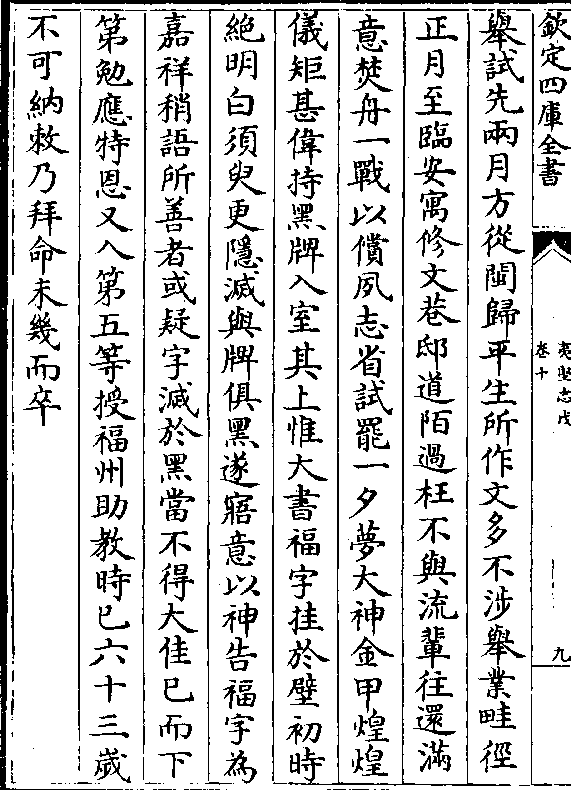 欽定四庫全書
夷堅志戊
卷十
九
舉試先兩月方從閩歸平生所作文多不涉舉業畦徑
正月至臨安寓修文巷邸道陌過枉不與流輩往還滿
意焚舟一戰以償夙志省試罷一夕夢大神金甲煌煌
儀矩甚偉持黑牌入室其上惟大書福字挂於壁初時
絶明白須臾更隱滅與牌俱黑遂寤意以神告福字為
嘉祥稍語所善者或疑字滅於黑當不得大佳已而下
第勉應特恩又入第五等授福州助教時已六十三歲
不可納敕乃拜命未幾而卒